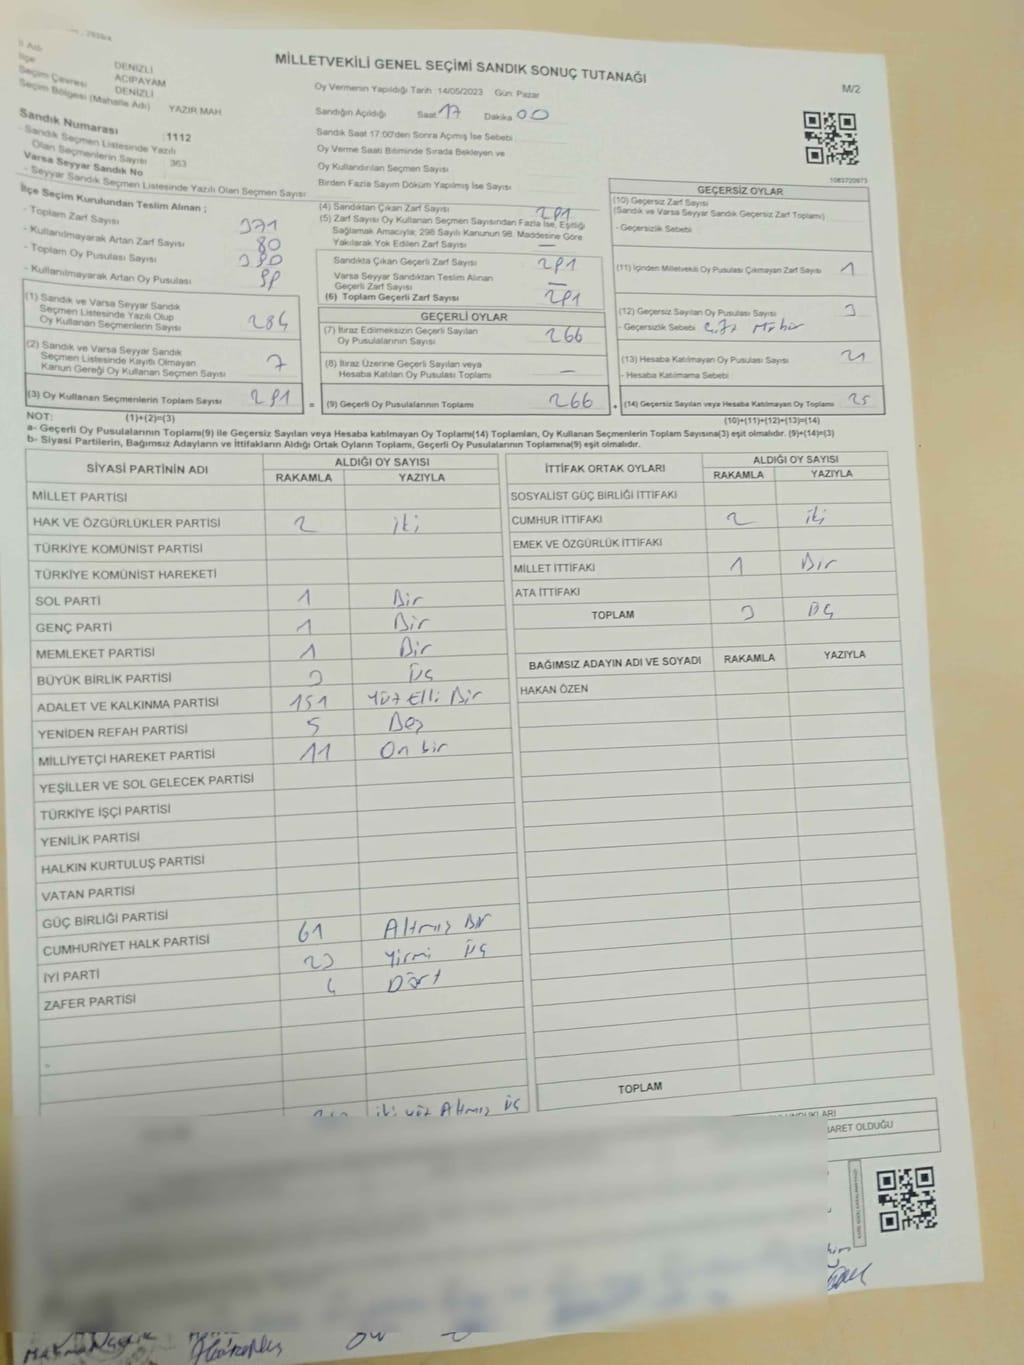 İl Adı
DENİZLİ
İlçe
ACIPAYAM
Seçim Çevresi
DENİZLİ
Seçim Bölgesi (Mahalle Adı)
YAZIR MAH
MİLLETVEKİLİ GENEL SEÇİMİ SANDIK SONUÇ TUTANAĞI
M/2
Oy Vermenin Yapıldığı Tarih :14/05/2023 Gün: Pazar
Sandığın Açıldığı Saat 17 Dakika 00
Sandık Saat 17:00'den Sonra Açımış İse Sebebi
Oy Verme Saati Bitiminde Sırada Bekleyen ve
Oy Kullandırılan Seçmen Sayısı
Birden Fazla Sayım Döküm Yapılmış İse Sayısı
Sandık Numarası :1112
- Sandık Seçmen Listesinde Yazılı
Olan Seçmenlerin Sayısı : 363
Varsa Seyyar Sandık No
- Seyyar Sandık Seçmen Listesinde Yazılı Olan Seçmen Sayısı
İlçe Seçim Kurulundan Teslim Alınan ;
- Toplam Zarf Sayısı 371
- Kullanılmayarak Artan Zarf Sayısı 80
- Toplam Oy Pusulası Sayısı
- Kullanılmayarak Artan Oy Pusulası
(1) Sandık ve Varsa Seyyar Sandık
Seçmen Listesinde Yazılı Olup
Oy Kullanan Seçmenlerin Sayısı 284
(2) Sandık ve Varsa Seyyar Sandık
Seçmen Listesinde Kayıtlı Olmayan
Kanun Gereği Oy Kullanan Seçmen Sayısı 7
(3) Oy Kullanan Seçmenlerin Toplam Sayısı 291
(4) Sandıktan Çıkan Zarf Sayısı 291
(5) Zarf Sayısı Oy Kullanan Seçmen Sayısından Fazla İse, Eşitliği
Sağlamak Amacıyla; 298 Sayılı Kanunun 98. Maddesine Göre
Yakılarak Yok Edilen Zarf Sayısı —
Sandıkta Çıkan Geçerli Zarf Sayısı 291
Varsa Seyyar Sandıktan Teslim Alınan
Geçerli Zarf Sayısı —
(6) Toplam Geçerli Zarf Sayısı 291
GEÇERLİ OYLAR
(7) İtiraz Edilmeksizin Geçerli Sayılan
Oy Pusulalarının Sayısı 266
(8) İtiraz Üzerine Geçerli Sayılan veya
Hesaba Katılan Oy Pusulası Toplamı —
= (9) Geçerli Oy Pusulalarının Toplamı 266
1083720973
GEÇERSİZ OYLAR
(10) Geçersiz Zarf Sayısı
(Sandık ve Varsa Seyyar Sandık Geçersiz Zarf Toplamı)
- Geçersizlik Sebebi
(11) İçinden Milletvekili Oy Pusulası Çıkmayan Zarf Sayısı 1
(12) Geçersiz Sayılan Oy Pusulası Sayısı 3
- Geçersizlik Sebebi
(13) Hesaba Katılmayan Oy Pusulası Sayısı 21
- Hesaba Katılmama Sebebi
+ (14) Geçersiz Sayılan veya Hesaba Katılmayan Oy Toplamı 25
NOT: (1)+(2)=(3)
(10)+(11)+(12)+(13)=(14)
a- Geçerli Oy Pusulalarının Toplamı(9) ile Geçersiz Sayılan veya Hesaba katılmayan Oy Toplamı(14) Toplamları, Oy Kullanan Seçmenlerin Toplam Sayısına(3) eşit olmalıdır. (9)+(14)=(3)
b- Siyasi Partilerin, Bağımsız Adayların ve İttifakların Aldığı Ortak Oyların Toplamı, Geçerli Oy Pusulalarının Toplamına(9) eşit olmalıdır.
SİYASİ PARTİNİN ADI
ALDIĞI OY SAYISI
RAKAMLA YAZIYLA
MİLLET PARTİSİ
HAK VE ÖZGÜRLÜKLER PARTİSİ 2 iki
TÜRKİYE KOMÜNİST PARTİSİ
TÜRKİYE KOMÜNİST HAREKETİ
SOL PARTİ 1 Bir
GENÇ PARTİ 1 Bir
MEMLEKET PARTİSİ 1 Bir
BÜYÜK BİRLİK PARTİSİ 3 üç
ADALET VE KALKINMA PARTİSİ 151 Yüz Elli Bir
YENİDEN REFAH PARTİSİ 5 Beş
MİLLİYETÇİ HAREKET PARTİSİ 11 On bir
YEŞİLLER VE SOL GELECEK PARTİSİ
TÜRKİYE İŞÇİ PARTİSİ
YENİLİK PARTİSİ
HALKIN KURTULUŞ PARTİSİ
VATAN PARTİSİ
GÜÇ BİRLİĞİ PARTİSİ
CUMHURİYET HALK PARTİSİ 61 Altmış Bir
İYİ PARTİ 23 Yirmi üç
ZAFER PARTİSİ 4 Dört
iki yüz Altmış üç
İTTİFAK ORTAK OYLARI
ALDIĞI OY SAYISI
RAKAMLA YAZIYLA
SOSYALİST GÜÇ BİRLİĞİ İTTİFAKI
CUMHUR İTTİFAKI 2 iki
EMEK VE ÖZGÜRLÜK İTTİFAKI
MİLLET İTTİFAKI 1 Bir
ATA İTTİFAKI
TOPLAM 3 üç
BAĞIMSIZ ADAYIN ADI VE SOYADI RAKAMLA YAZIYLA
HAKAN ÖZEN
TOPLAM
BARET OLDUĞU